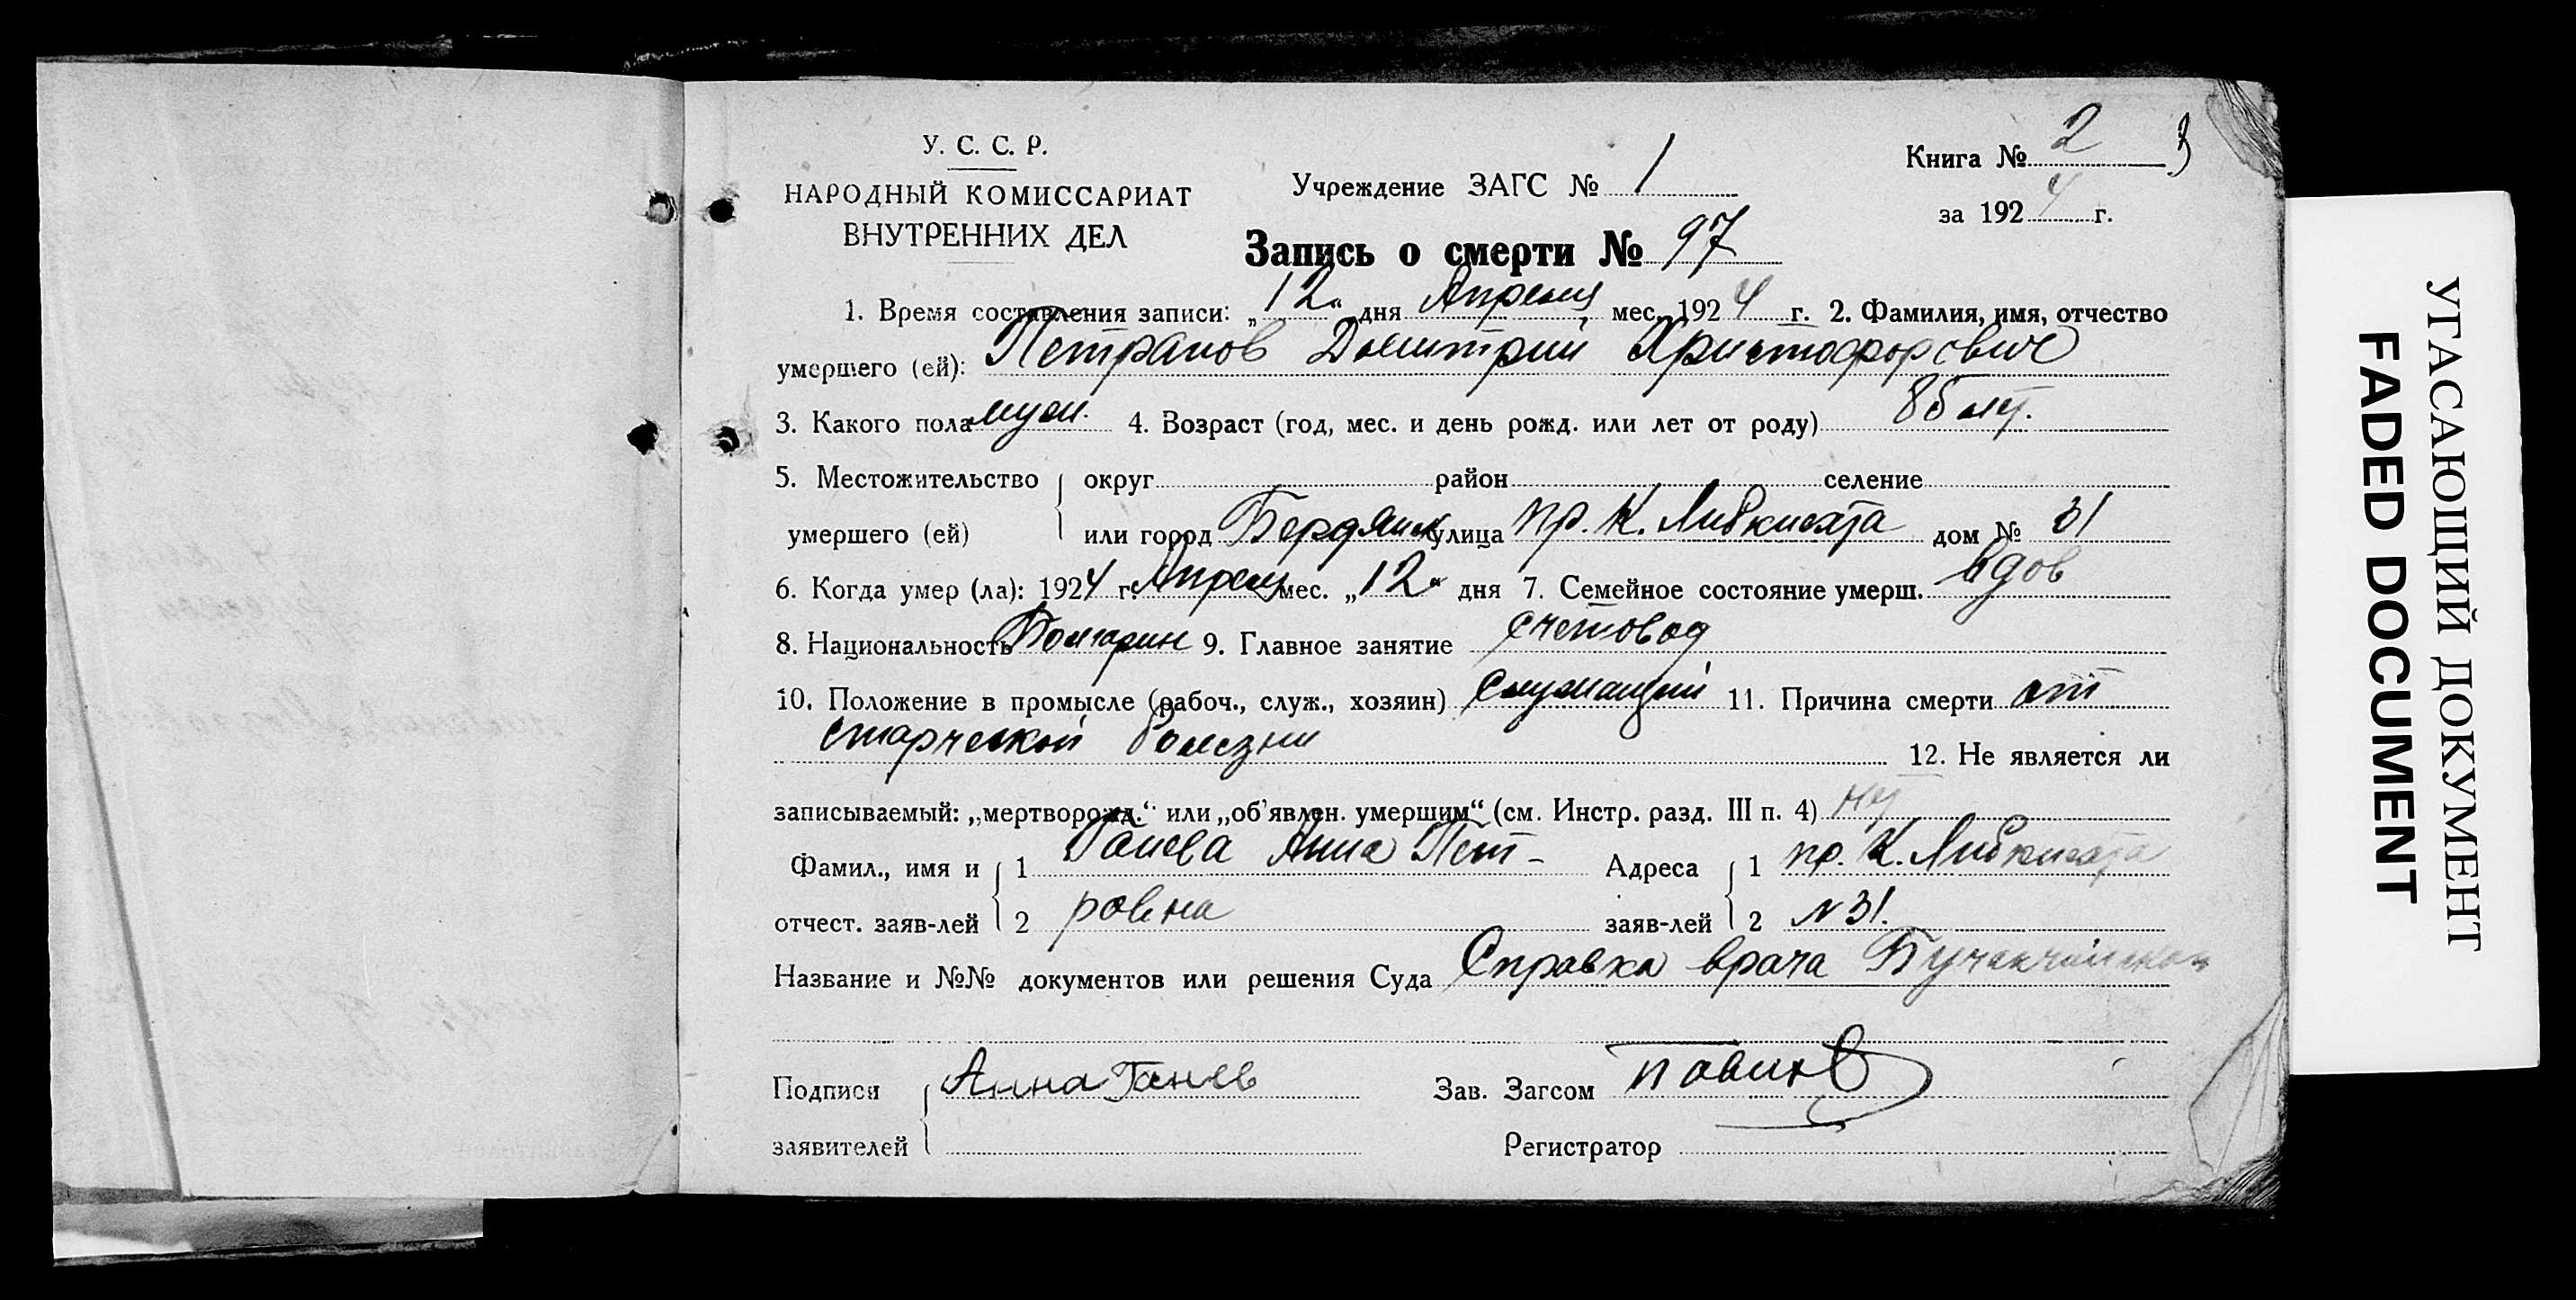 У. С. С. Р.
НАРОДНЫЙ КОМИССАРИАТ
ВНУТРЕННИХ ДЕЛ
Учреждение ЗАГС № 1
Книга № 2 3
за 1924 г.
Запись о смерти № 97
1. Время составления записи: „12“ дня Апреля мес. 1924 г. 2. Фамилия, имя, отчество
умершего (ей): Петраков Дмитрий Христофорович
3. Какого пола муж. 4. Возраст (год, мес. и день рожд. или лет от роду) 85 лет.
5. Местожительство округ район селение
умершего (ей) или город Бердянск улица пр. К. Либкнехта дом № 31
6. Когда умер (ла): 1924 г. Апреля мес. „12“ дня 7. Семейное состояние умерш. вдов
8. Национальность Болгарин 9. Главное занятие счетовод
10. Положение в промысле (рабоч., служ., хозяин) Служащий 11. Причина смерти от
старческой болезни 12. Не является ли
записываемый: „мертворожд.“ или „об’явлен. умершим“ (см. Инстр. разд. III п. 4) нет
Фамил., имя и 1 Ганева Анна Пет- Адреса 1 пр. К. Либкнехта
отчест. заяв-лей 2 ровна заяв-лей 2 № 31.
Название и №№ документов или решения Суда Справка врача
Подписи Анна Ганев Зав. Загсом
заявителей Регистратор
УГАСАЮЩИЙ ДОКУМЕНТ
FADED DOCUMENT